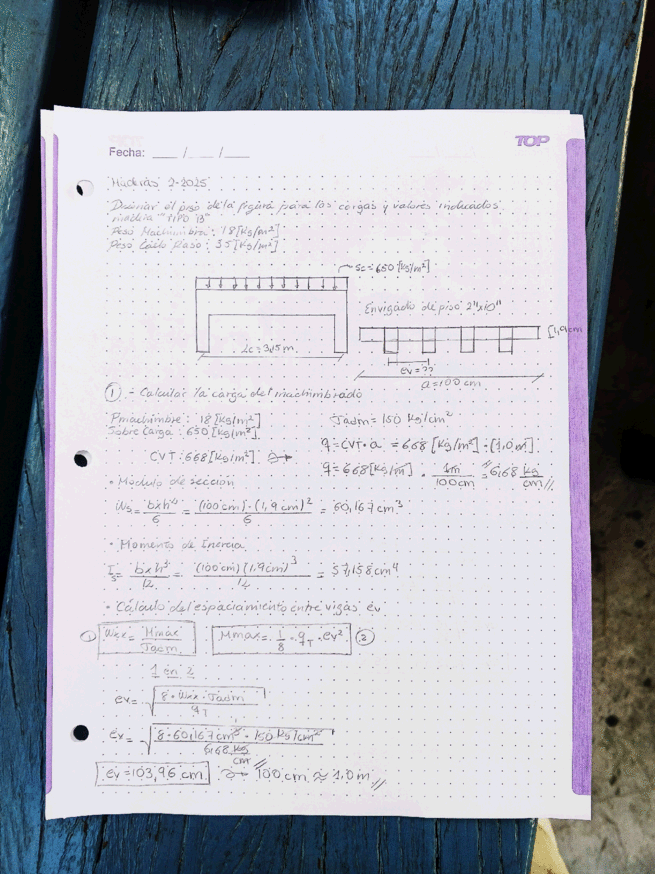 TOP
Fecha: ___ / ___ / ___
Maderas 2-2025
Diseñar el piso de la figura para las cargas y valores indicados
madera "tipo B"
Peso Machimbre: 18[kg/m²]
Peso Cielo Raso: 35[kg/m²]
Sc=650[kg/m²]
Envigado de piso 2"x10"
1,9cm
Lc=3,15m
ev=??
a=100cm
① .- Calcular la carga del machimbrado
Pmachimbre: 18[kg/m²]
Sobre Carga: 650[kg/m²]
CVT: 668[kg/m²]
σadm=150 kg/cm²
q=CVT·a =668[kg/m²]·[1,0m]
q=668[kg/m]·1m/100cm = 6,68 kg/cm //
• Módulo de sección
Ws= bxh²/6 = (100cm)·(1,9cm)²/6 = 60,167cm³
• Momento de Inercia
Is= bxh³/12 = (100cm)(1,9cm)³/12 = 57,158cm⁴
• Cálculo del espaciamiento entre vigas ev
① Wxx= Mmax/σadm
Mmax= 1/8·qT·ev² ②
1 en 2
ev= √(8·Wxx·σadm/qT)
ev= √(8·60,167cm³·150kg/cm²/6,68 kg/cm)
ev=103,96 cm → 100cm ≈ 1.0m //